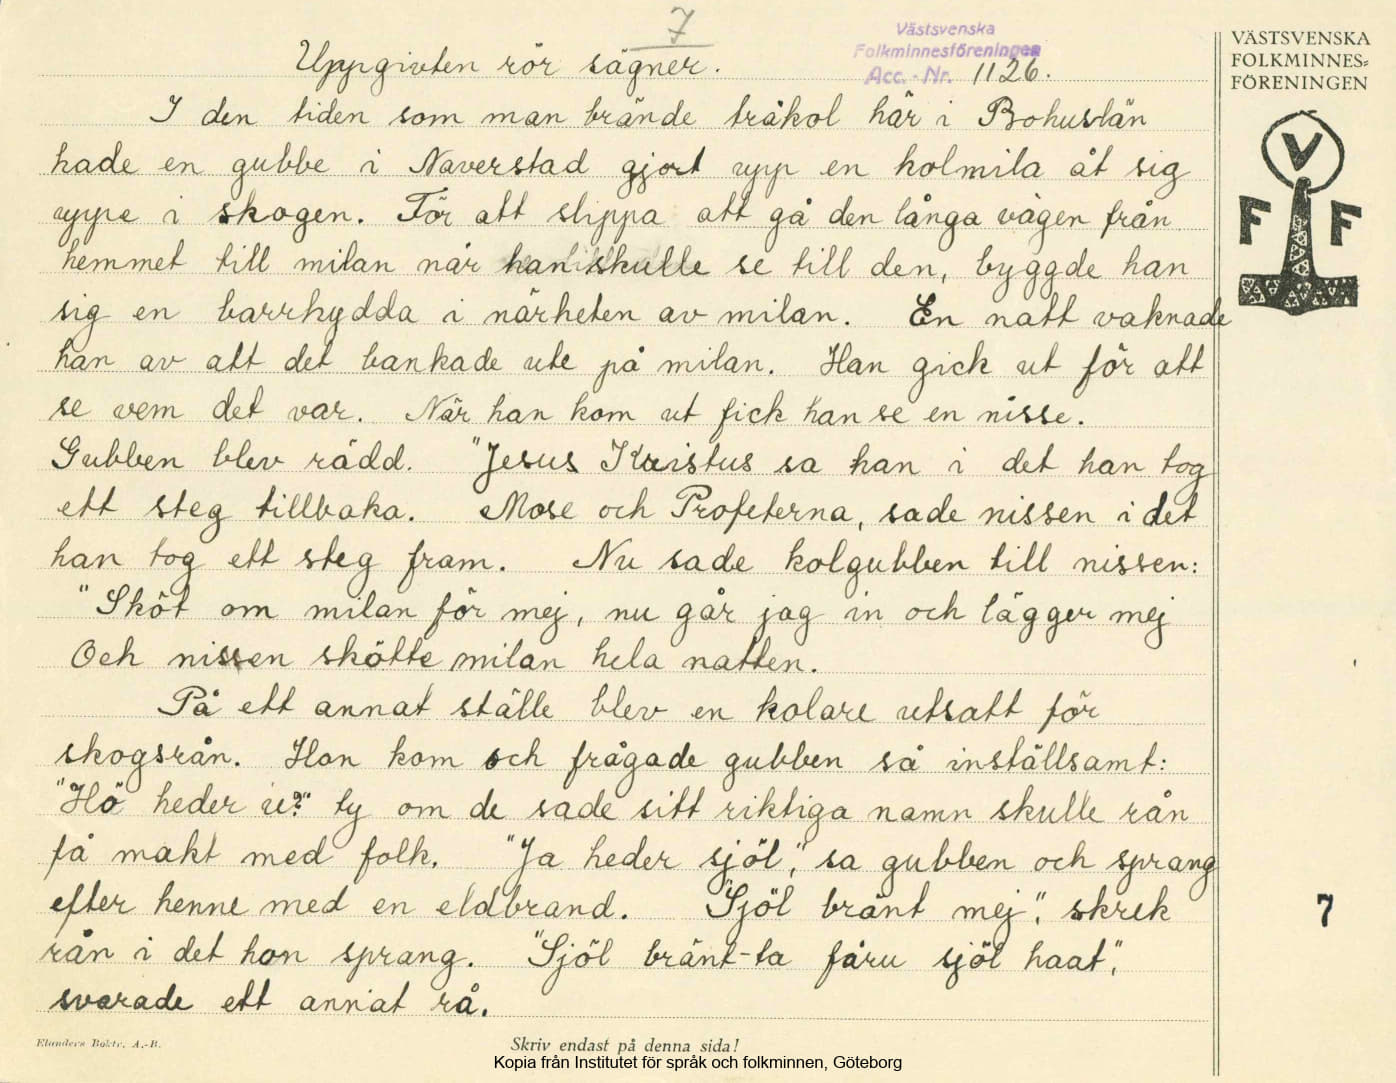 7
Västsvenska
Folkminnesföreningen
Acc.-Nr. 1126.
VÄSTSVENSKA
FOLKMINNES=
FÖRENINGEN
V
F F
Uppgivten rör sägner.
I den tiden som man brände träkol här i Bohuslän
hade en gubbe i Naverstad gjort upp en kolmila åt sig
uppe i skogen. För att slippa att gå den långa vägen från
hemmet till milan när han skulle se till den, byggde han
sig en barrhydda i närheten av milan. En natt vaknade
han av att det bankade ute på milan. Han gick ut för att
se vem det var. När han kom ut fick han se en nisse.
Gubben blev rädd. "Jesus Kristus sa han i det han tog
ett steg tillbaka. Mose och Profeterna, sade nissen i det
han tog ett steg fram. Nu sade kolgubben till nissen:
"Sköt om milan för mej, nu går jag in och lägger mej
Och nissen skötte milan hela natten.
På ett annat ställe blev en kolare utsatt för
skogsrån. Hon kom och frågade gubben så inställsamt:
"Hö heder u?" ty om de sade sitt riktiga namn skulle rån
få makt med folk. "Ja heder sjöl", sa gubben och sprang
efter henne med en eldbrand. "Sjöl bränt mej", skrek
rån i det hon sprang. "Sjöl bränt-ta fåru sjöl haat",
svarade ett annat rå.
7
Elanders Boktr. A.-B.
Skriv endast på denna sida!
Kopia från Institutet för språk och folkminnen, Göteborg